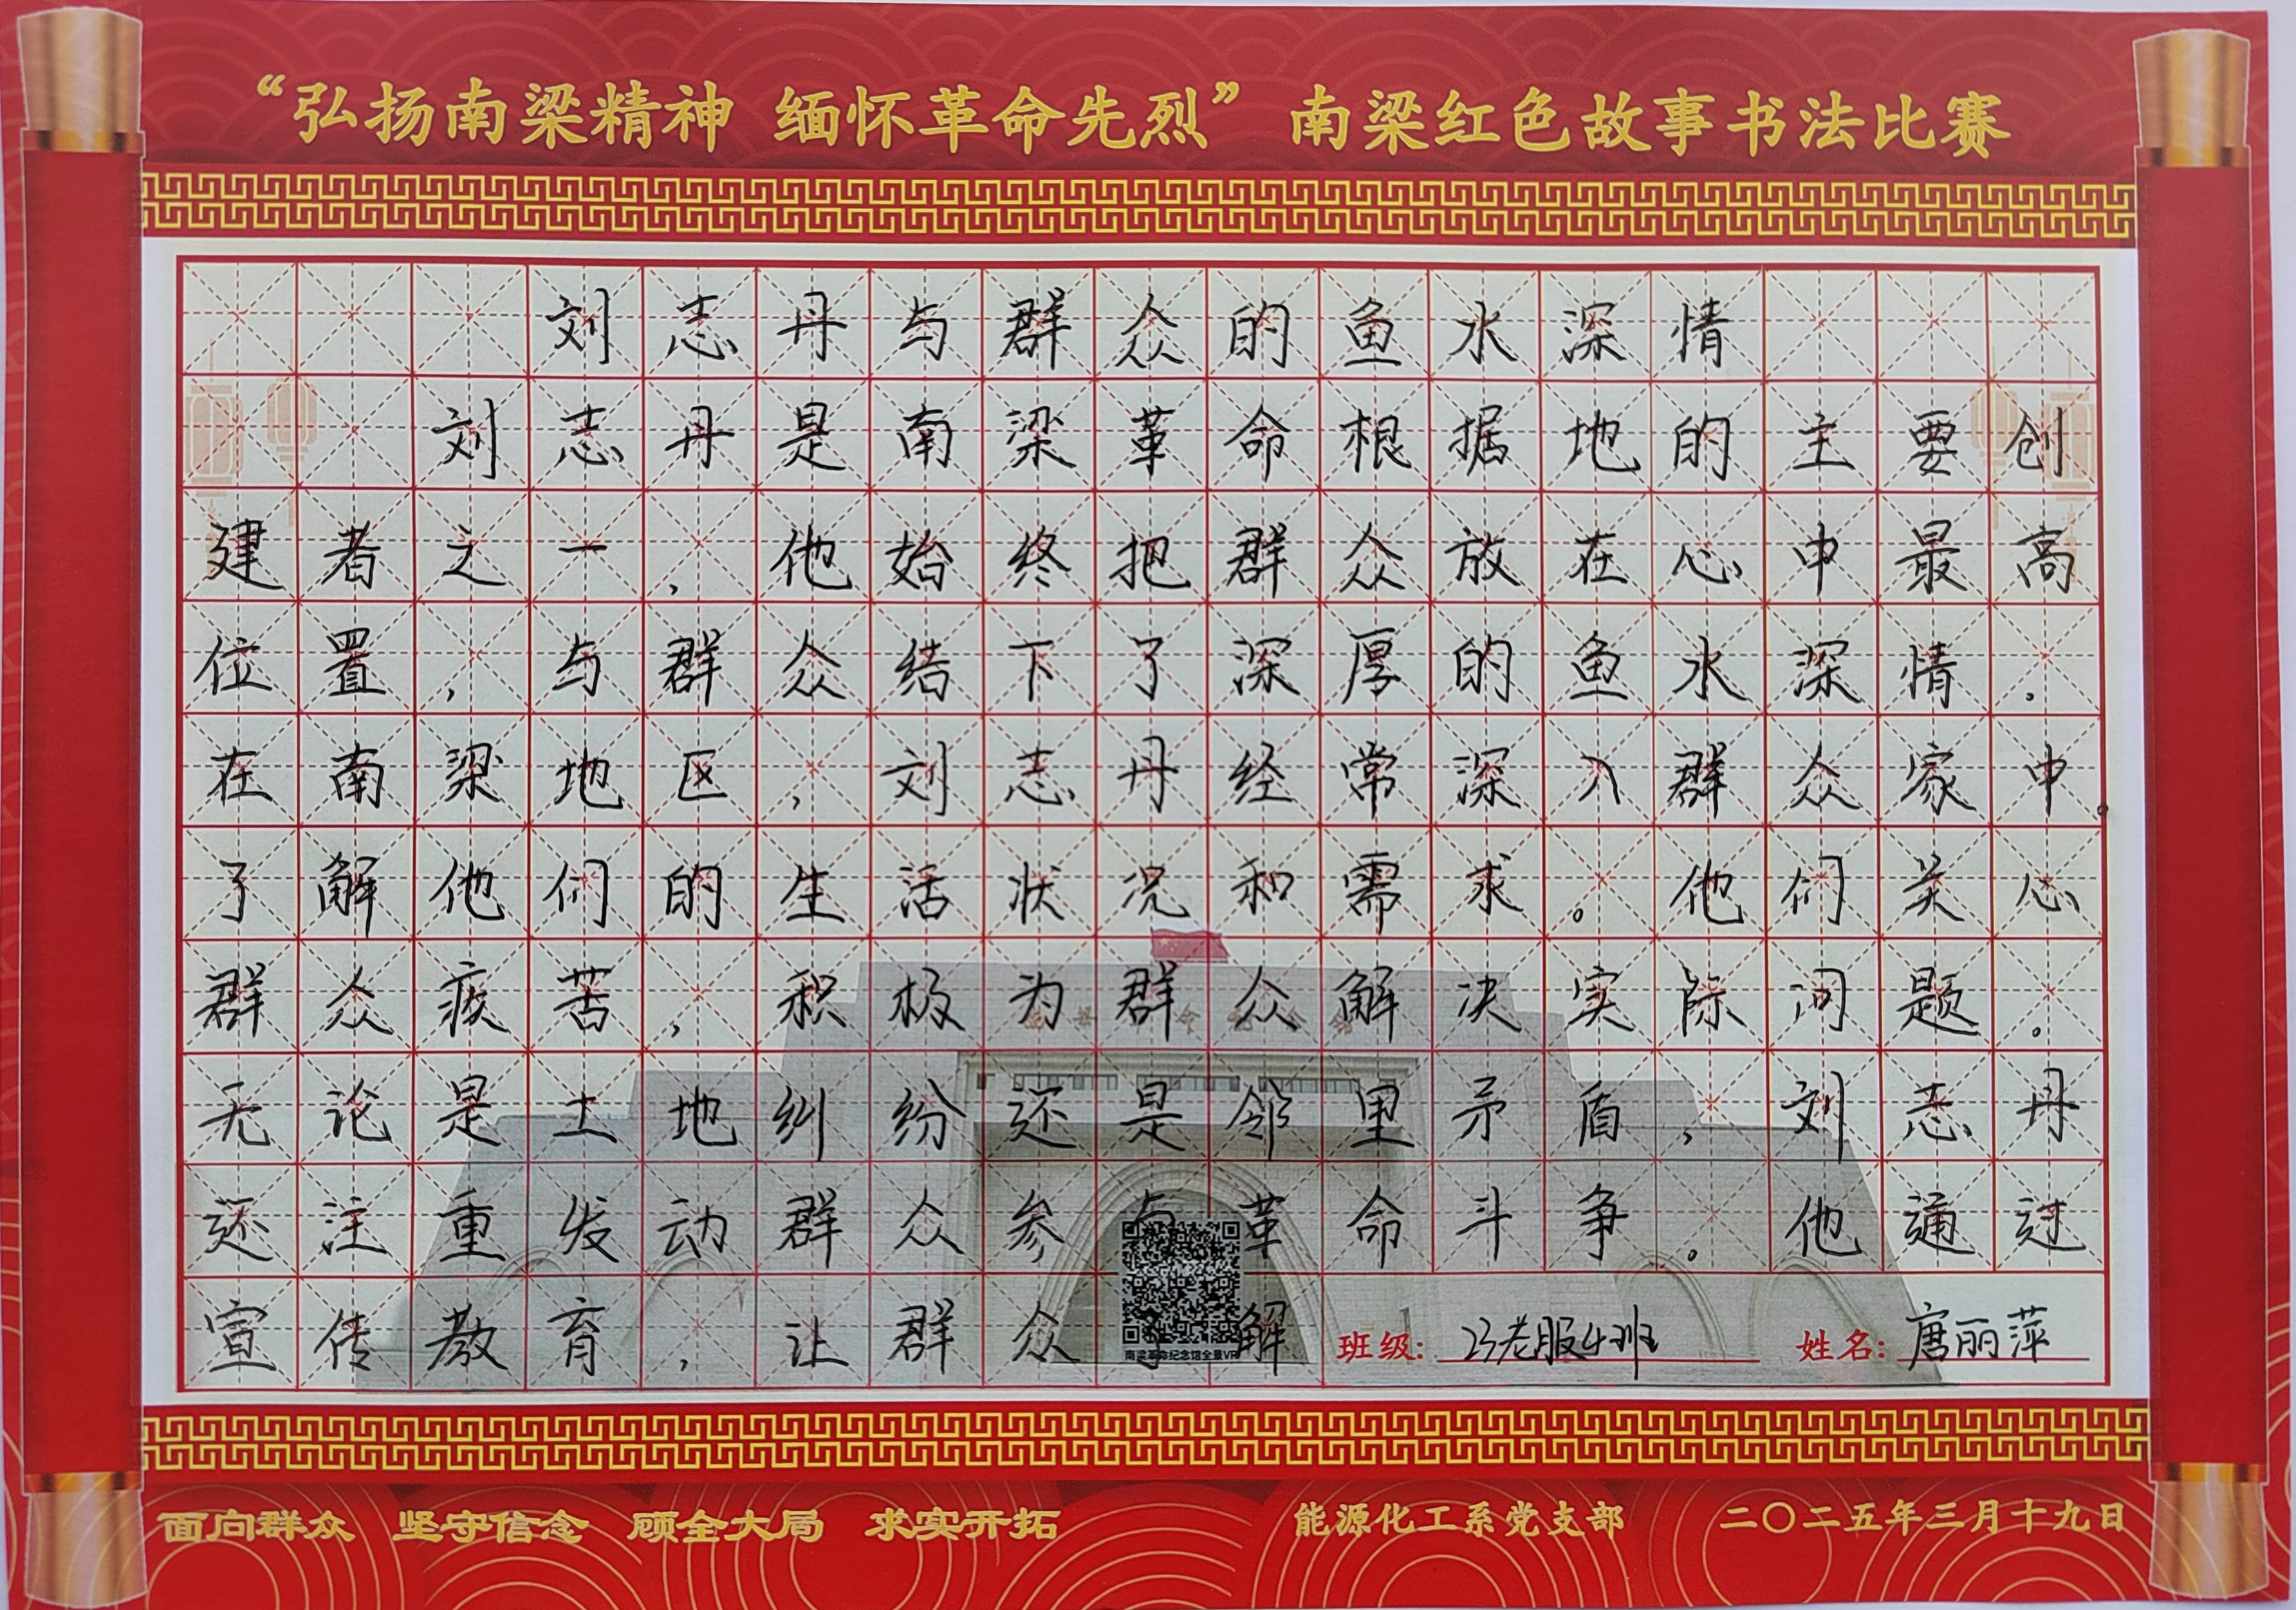 “弘扬南梁精神 缅怀革命先烈”南梁红色故事书法比赛
刘志丹与群众的鱼水深情
刘志丹是南梁革命根据地的主要创
建者之一，他始终把群众放在心中最高
位置，与群众结下了深厚的鱼水深情.
在南梁地区，刘志丹经常深入群众家中。
了解他们的生活状况和需求。他们关心
群众疾苦，积极为群众解决实际问题。
无论是土地纠纷还是邻里矛盾，刘志丹
还注重发动群众参与革命斗争。他通过
宣传教育，让群众了解
南梁革命纪念馆全景VR
班级：23老服4班 姓名：唐丽萍
面向群众 坚守信念 顾全大局 求实开拓 能源化工系党支部 二〇二五年三月十九日